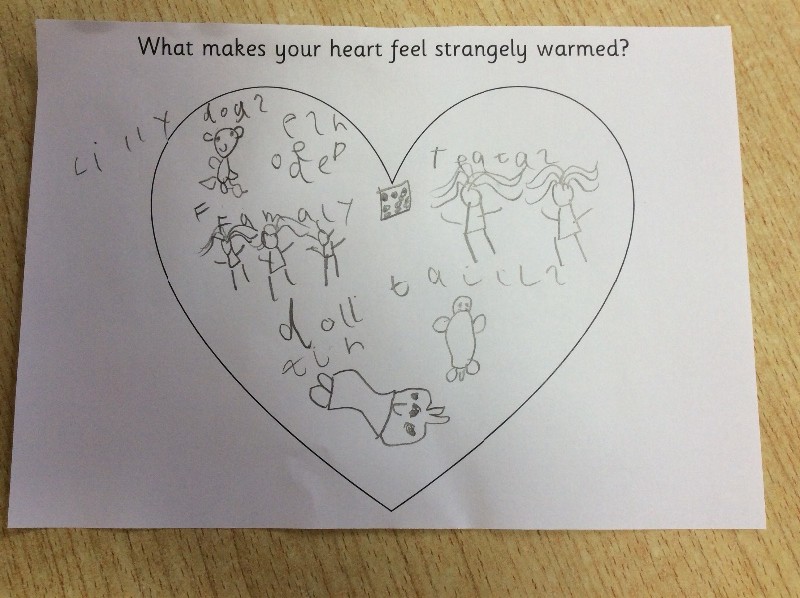 What makes your heart feel strangely warmed?
Lilly
dogs
ezn
odep
Teatas
Framaly
taills
doll
tin